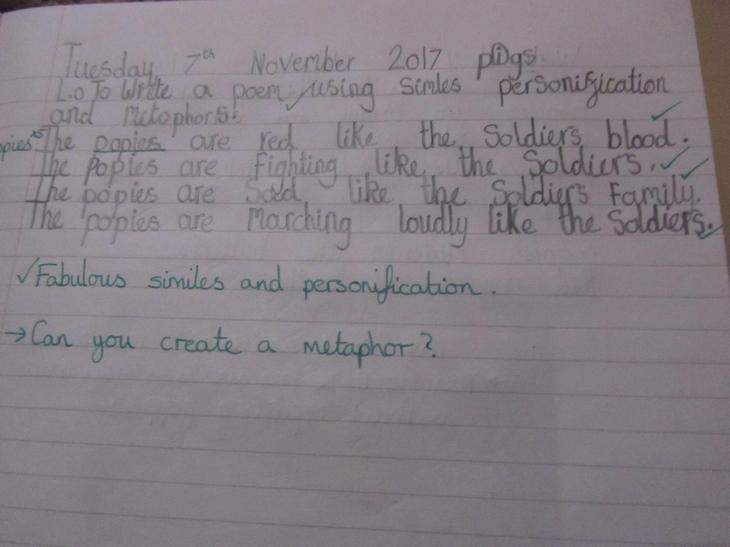 Tuesday 7th November 2017
L.O To Write a poem using simles personification
and Metophors:
The popies are red like the Soldiers blood.
The Popies are Fighting like the Soldiers.
The popies are Sad like the Soldiers Family.
The popies are Marching loudly like the Soldiers.
✓Fabulous similes and personification.
→Can you create a metaphor?